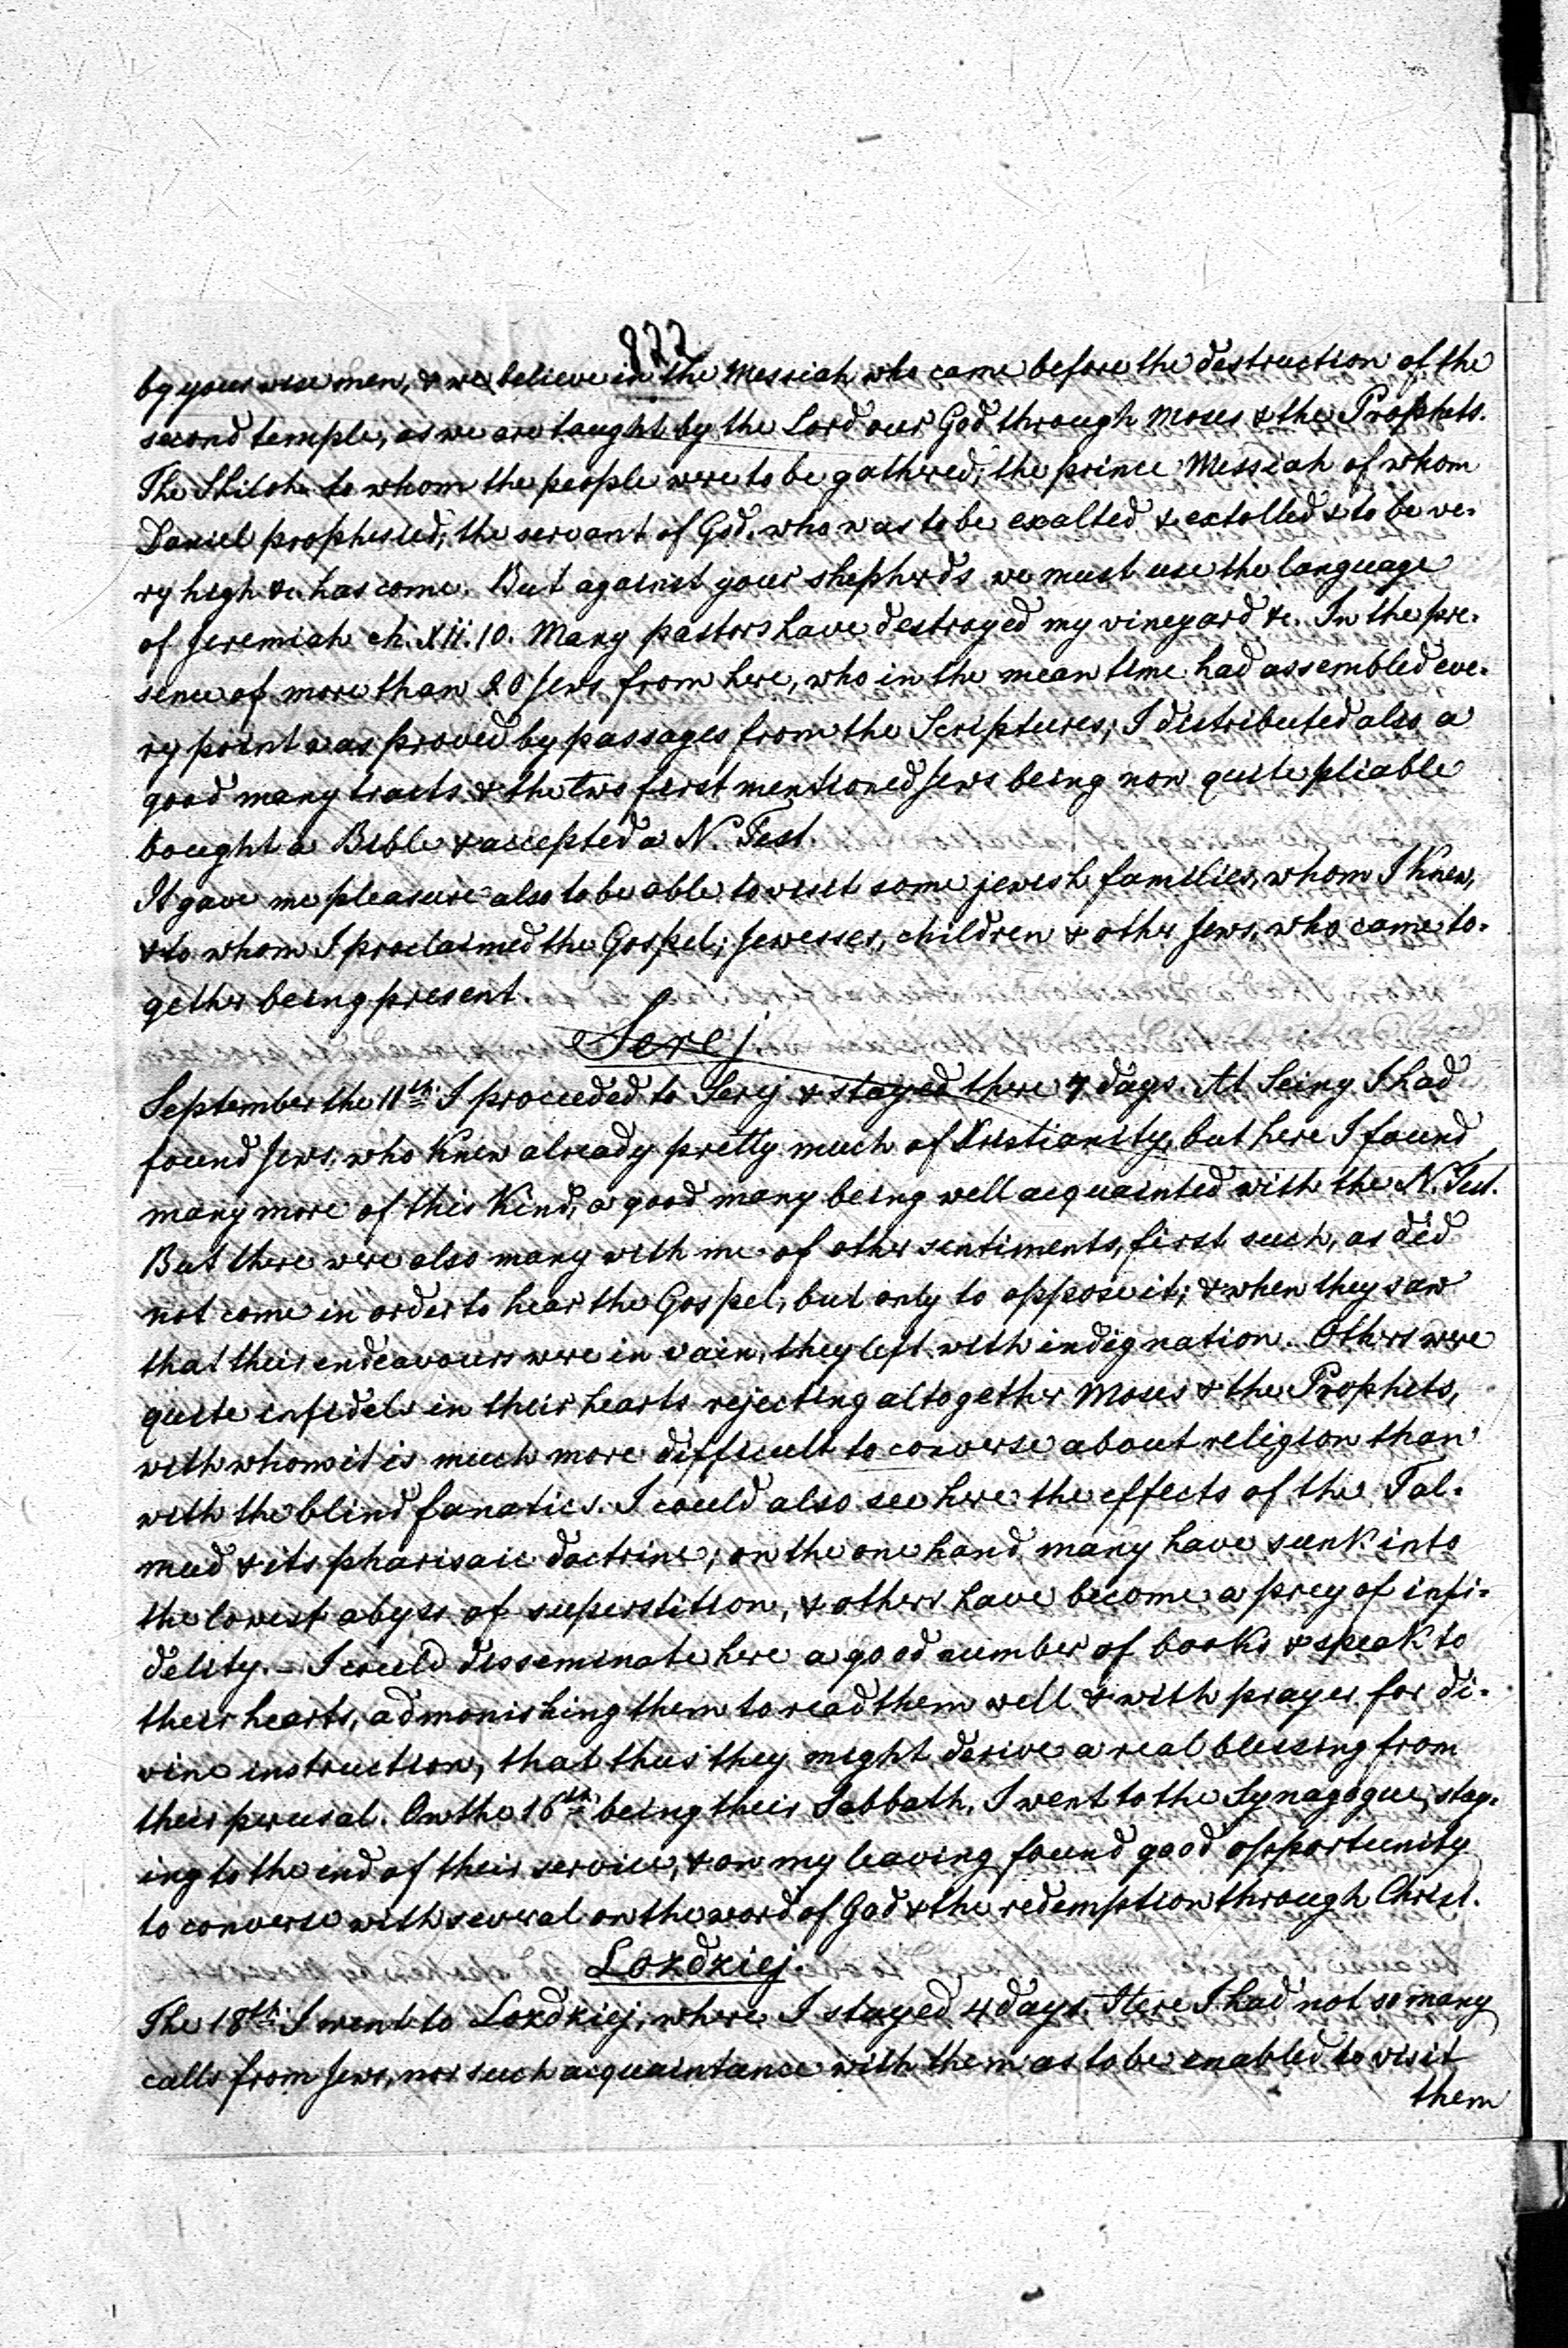 822
by your wise men, & we believe in the Messiah who came before the destruction of the
second temple, as we are taught by the Lord our God through Moses & the Prophets.
The Shiloh to whom the people were to be gathered; the prince Messiah of whom
Daniel prophesied; the servant of God, who was to be exalted & extolled & to be ve-
ry high &c. has come. But against your shepherds we must use the language
of Jeremiah ch. XII. 10. Many pastors have destroyed my vineyard &c. In the pre-
sence of more than 20 Jews from here, who in the mean time had assembled eve-
ry point was proved by passages from the Scriptures; I distributed also a
good many tracts & the two first mentioned Jews being now quite pliable
bought a Bible & accepted a N. Test.
It gave me pleasure also to be able to visit some jewish families, whom I knew,
& to whom I proclaimed the Gospel; Jewesses, children & other Jews, who came to-
gether being present.
Serej
September the 11th I proceeded to Serej & stayed there 7 days. At Seiny I had
found Jews, who knew already pretty much of Xristianity, but here I found
many more of this kind, a good many being well acquainted with the N. Test.
But there were also many with me of other sentiments, first such, as did
not come in order to hear the Gospel, but only to oppose it; & when they saw
that their endeavours were in vain, they left with indignation. Others were
quite infidels in their hearts rejecting altogether Moses & the Prophets,
with whom it is much more difficult to converse about religion than
with the blind fanatics. I could also see here the effects of the Tal-
mud & its pharisaic doctrine; on the one hand many have sunk into
the lowest abyss of superstition, & others have become a prey of infi-
delity. — I could disseminate here a good number of books & speak to
their hearts, admonishing them to read them well & with prayer for di-
vine instruction, that thus they might derive a real blessing from
their perusal. On the 16th being their Sabbath, I went to the Synagogue, stay-
ing to the end of their service, & on my leaving found good opportunity
to converse with several on the word of God & the redemption through Christ.
Lozdziej.
The 18th I went to Lozdziej, where I stayed 4 days. Here I had not so many
calls from Jews, nor such acquaintance with them as to be enabled to visit
them